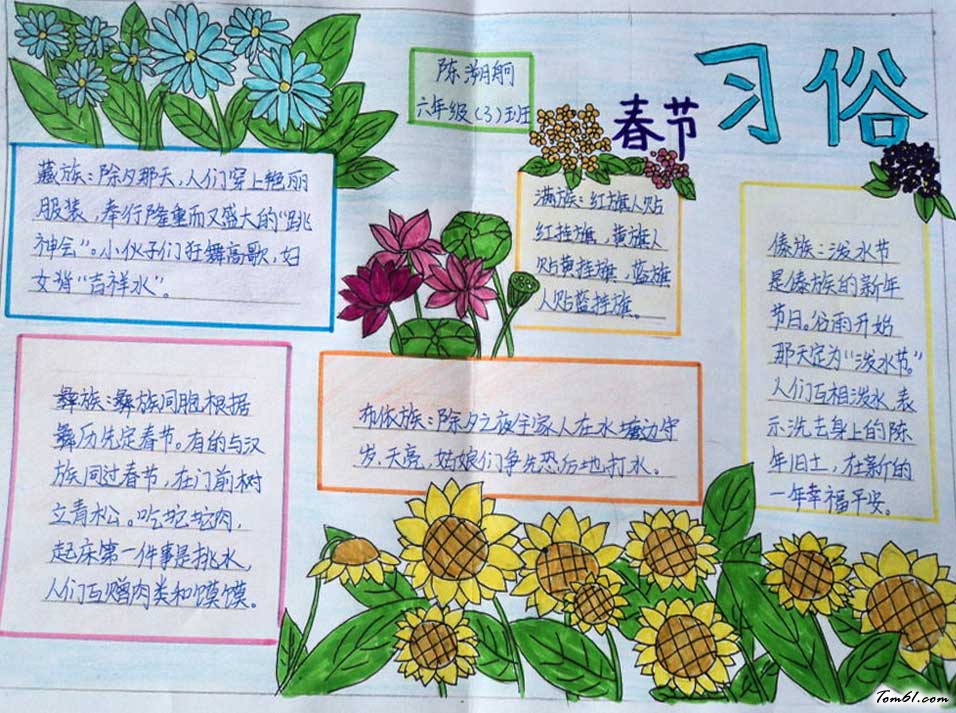 春节 习俗
陈溯舸
六年级(3)班
藏族:除夕那天,人们穿上艳丽
服装,举行隆重而又盛大的“跳
神会”。小伙子们狂舞高歌,妇
女背“吉祥水”。
满族:红旗人贴
红挂旗,黄旗人
贴黄挂旗,蓝旗
人贴蓝挂旗。
傣族:泼水节
是傣族的新年
节日。谷雨开始
那天定为“泼水节”
人们互相泼水,表
示洗去身上的陈
年旧土,在新的
一年幸福平安。
彝族:彝族同胞根据
彝历先定春节。有的与汉
族同过春节,在门前树
立青松。吃坨坨肉,
起床第一件事是挑水,
人们互赠肉类和馍馍。
布依族:除夕之夜全家人在水塘边守
岁,天亮,姑娘们争先恐后地打水。
Tom61.com